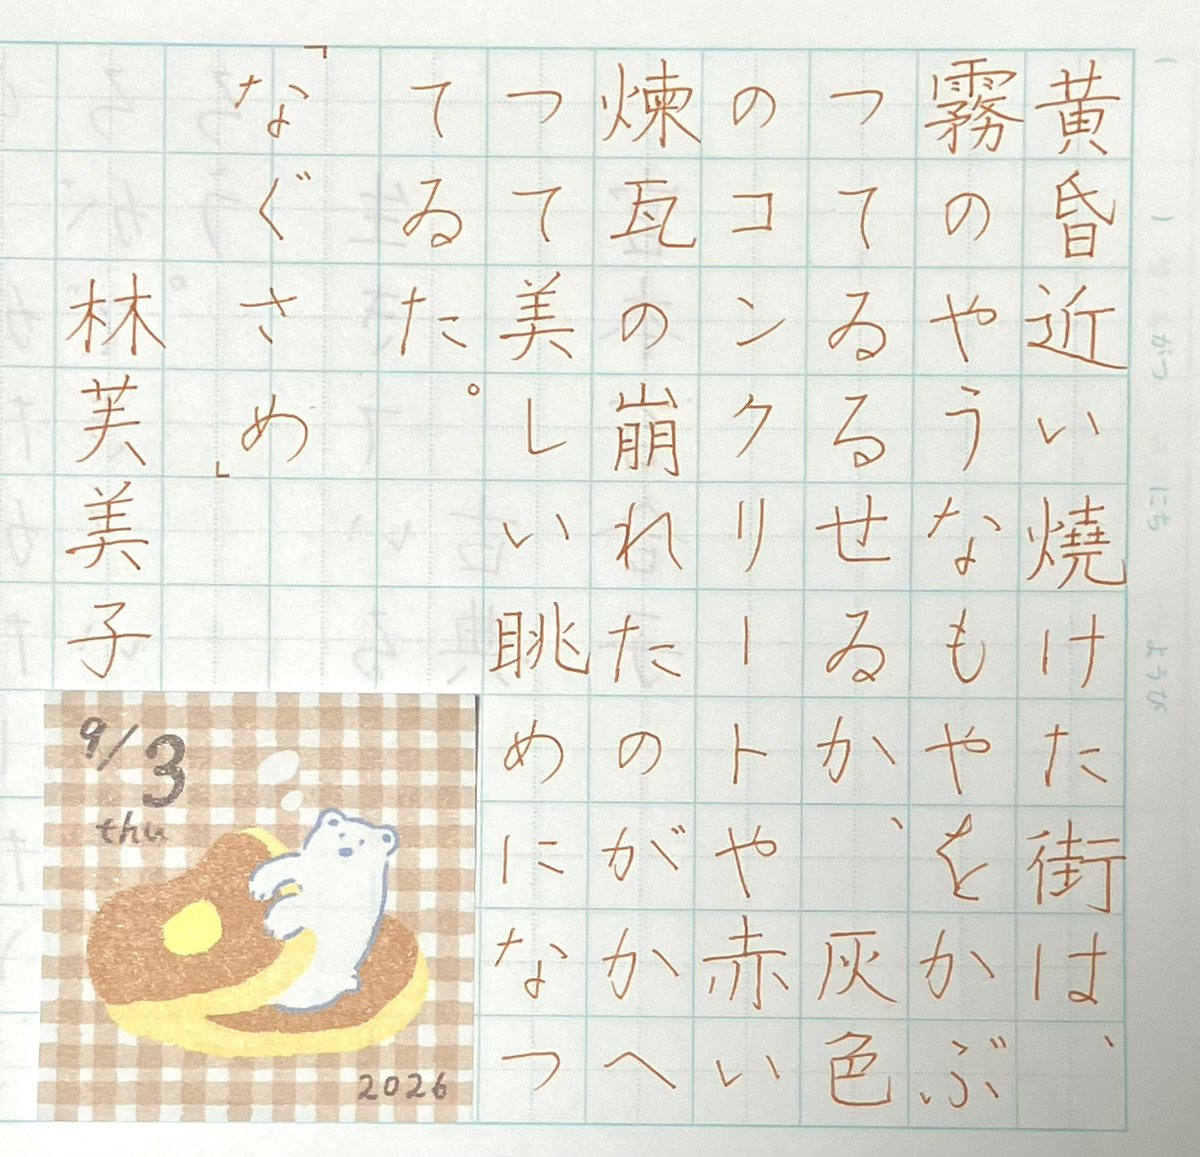 黄昏近い燒けた街は、
霧のやうなもやをかぶ
つてゐるせゐか、灰色
のコンクリートや赤い
煉瓦の崩れたのがかへ
つて美しい眺めになつ
てゐた。
「なぐさめ」
林芙美子
9/3
thu
2026